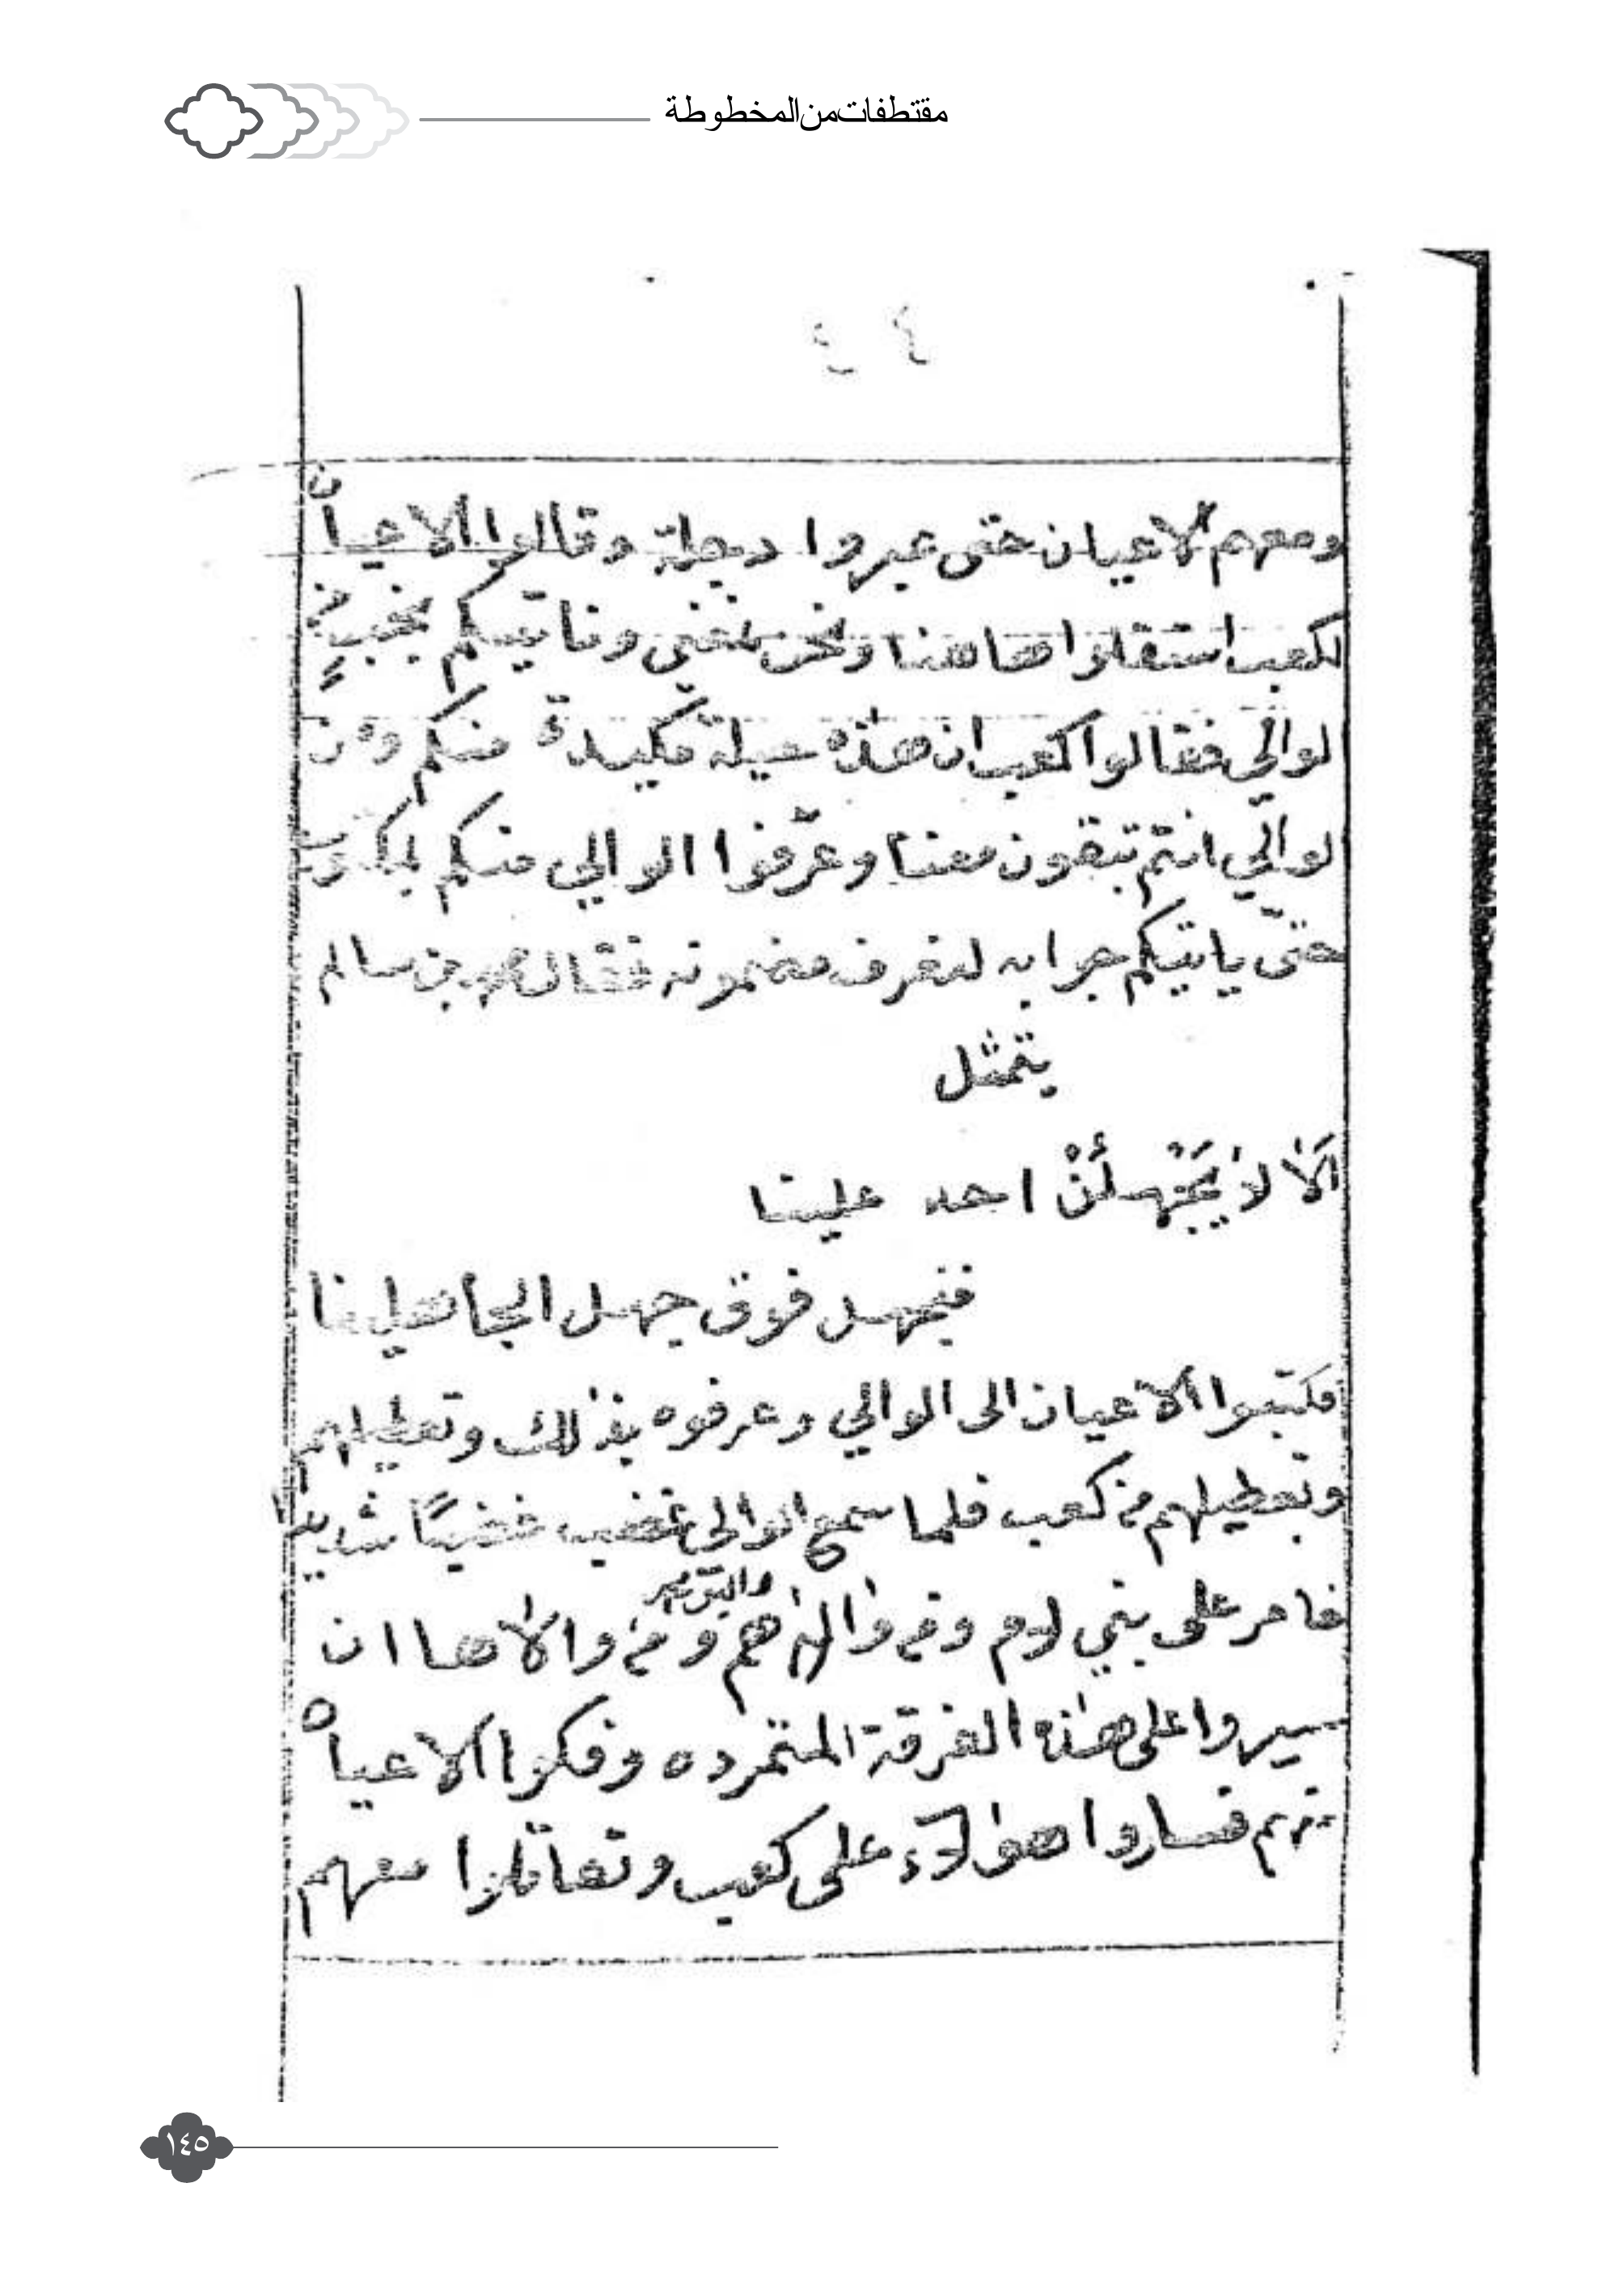 مقتطفات من المخطوطة
٤٤
ومعهم الاعيان حتى عبروا دجلة وقالوا الاعيان
لكعب استقلوا هاهنا ونحن نمضي وناتيكم بخبر من
لوالي فقالوا كعب ان هذه حيلة مكيدة منكم ومن
لوالي انتم تبقون معنا وعرّفوا الوالي منكم بمكتوب
حتّى ياتيكم جوابه لنعرف مضمونه فقال بن سالم
يتمثل
اَلا لا يَجْهلَنْ احد علينا
فنجهل فوق جهل الجاهلينا
فكتبوا الاعيان الى الوالي وعرفوه بذلك وتعطيلهم
وتعطيلهم من كعب فلما سمع الوالي غضب غضباً شديدا
فامر على بني لام ومن والاهم ومن والاها ان
سيروا على هذه الفرقة المتمرده وفكوا الاعيان
منهم فساروا هولاء على كعب وتقاتلوا معهم
١٤٥